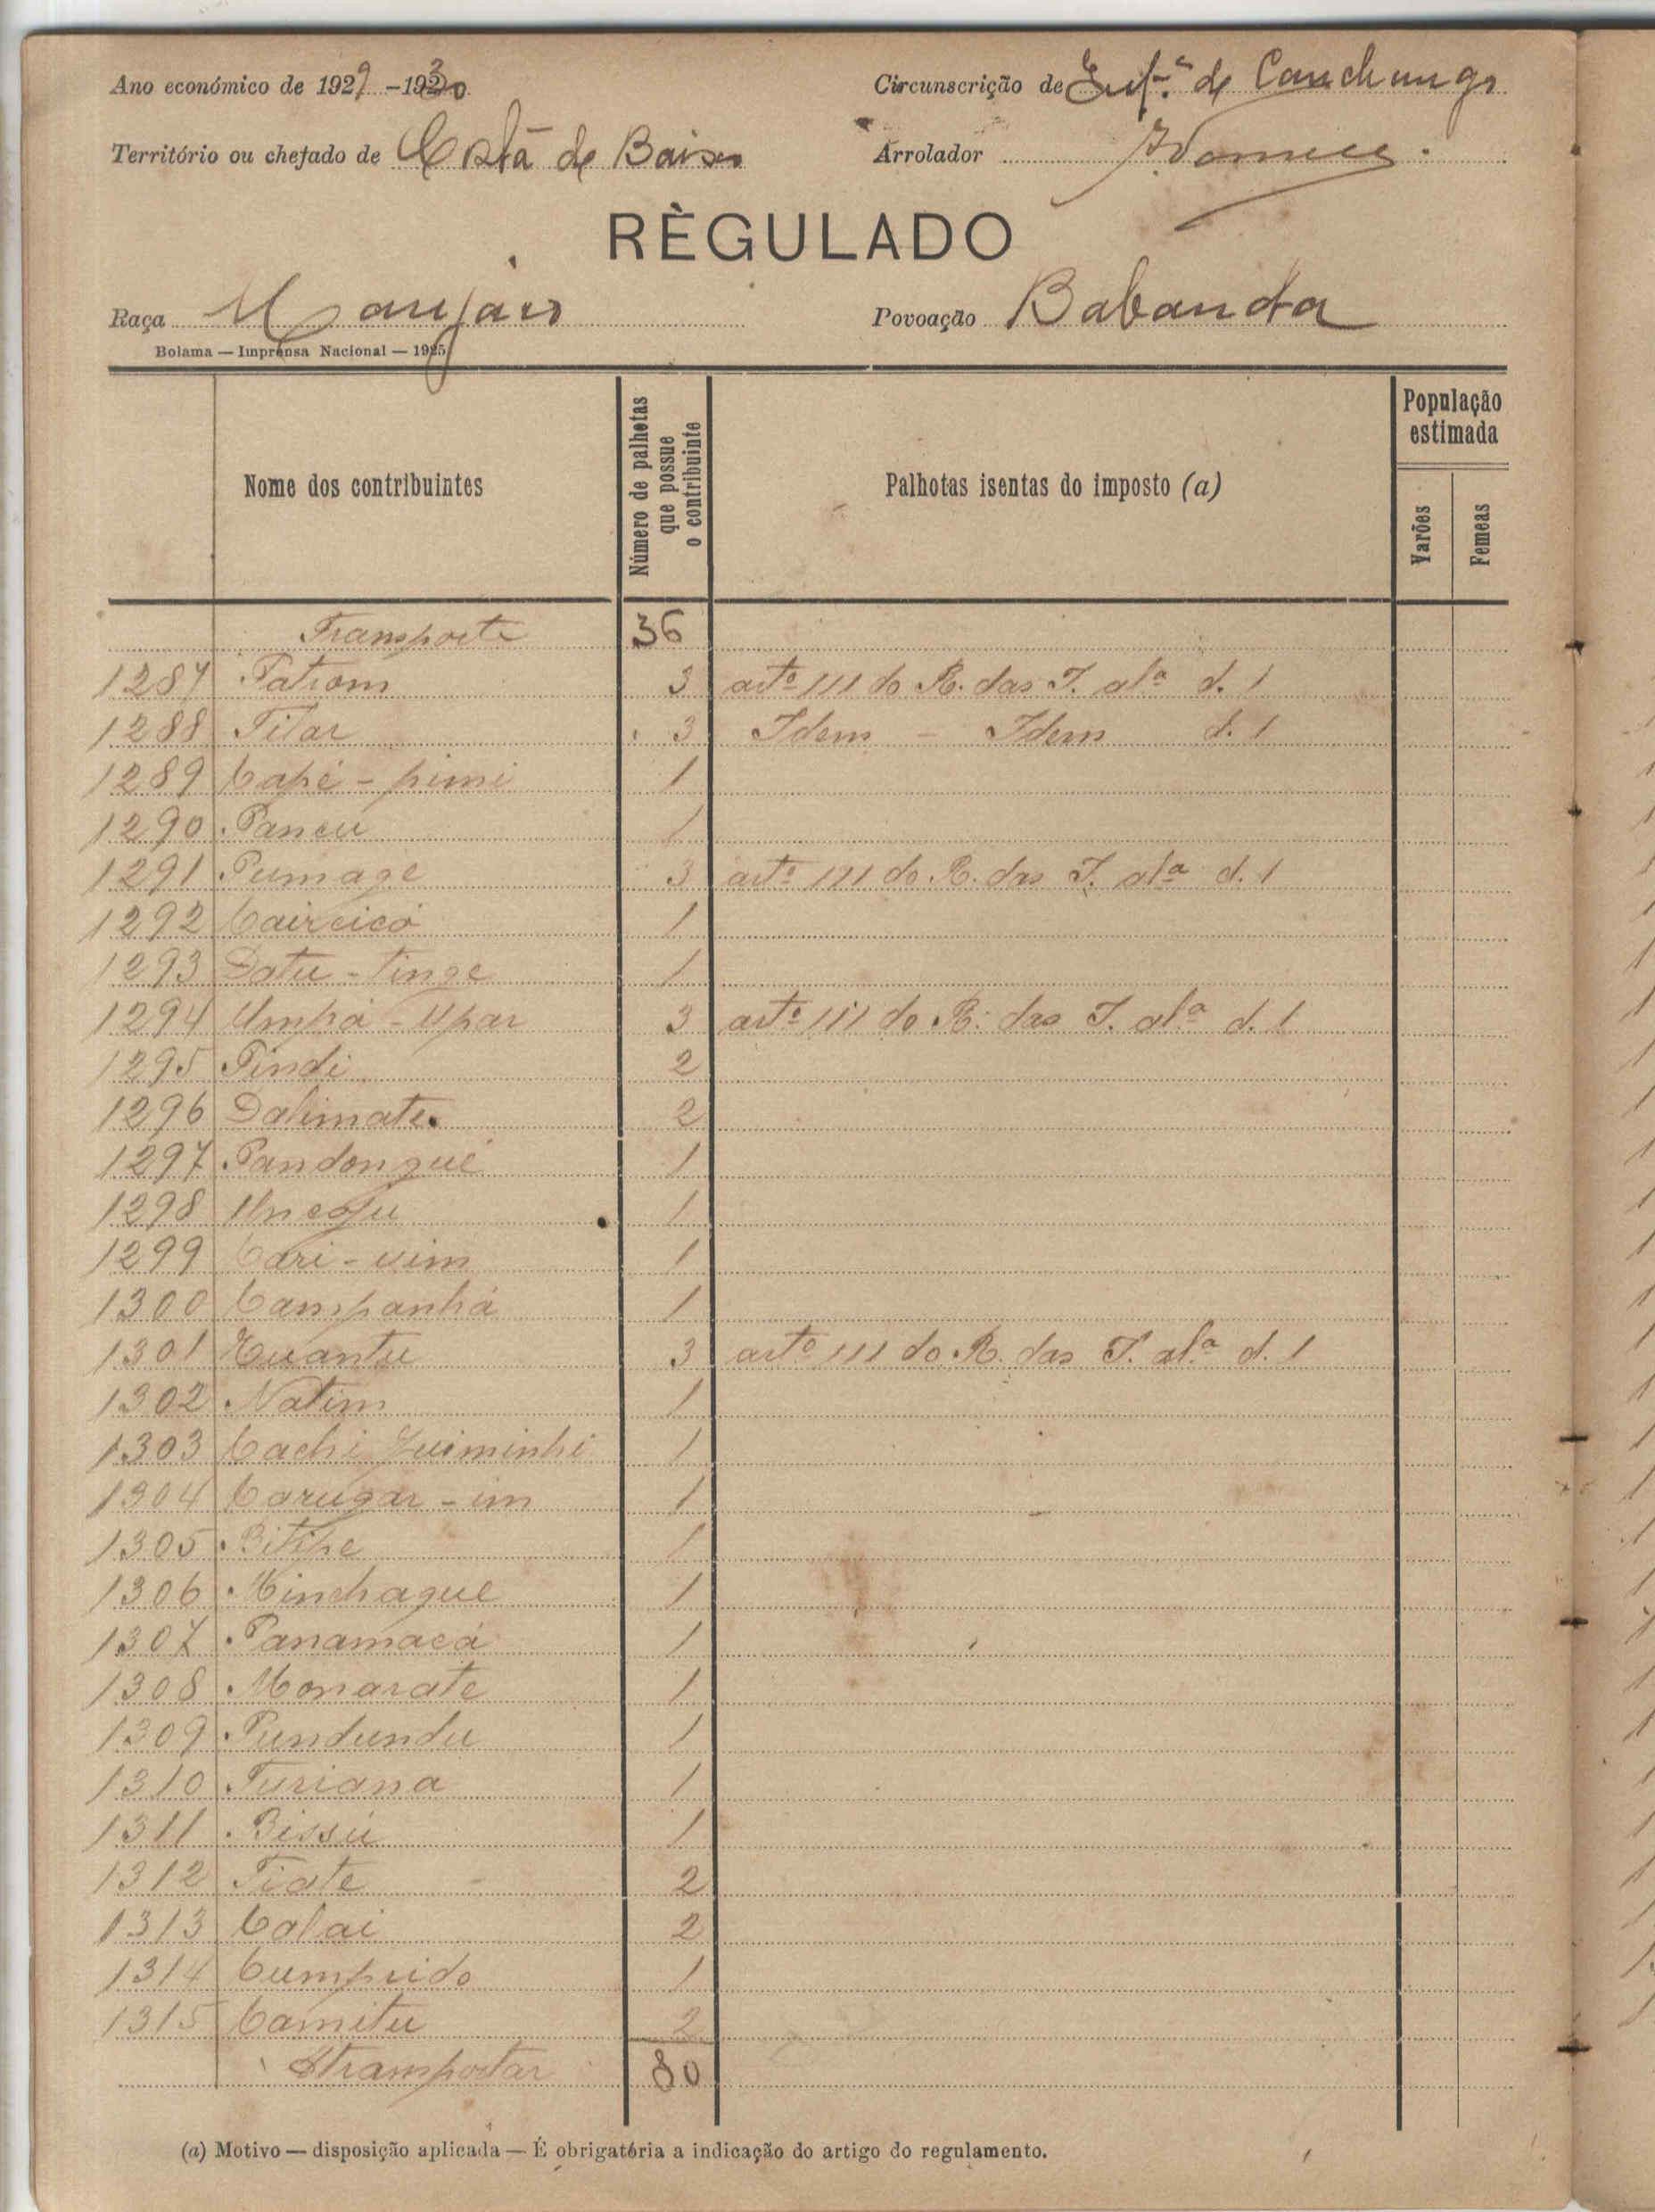 Ano económico de 1929-1930
Circunscrição de de Canchungo
Território ou chefado de Costa de Baixo
Arrolador
RÈGULADO
Raça Manjaco
Povoação Babanda
Bolama — Imprensa Nacional — 1925
Nome dos contribuintes
Número de palhotas que possue o contribuinte
Palhotas isentas do imposto (a)
População estimada
Varões
Femeas
Transporte 36
1287 Patrom 3 artº 111 do R. das I. alª d. 1
1288 Tilar 3 Idem - Idem d. 1
1289 Capé - pimi 1
1290 Pancu 1
1291 Pumage 3 artº 111 do R. das I. alª d. 1
1292 Caircicó 1
1293 Datu - tinge 1
1294 Umpá - Upar 3 artº 111 do R. das I. alª d. 1
1295 Pindi 2
1296 Dalimate 2
1297 Pandongué 1
1298 1
1299 Cari - vim 1
1300 Campanhá 1
1301 Quantu 3 artº 111 do R. das I. alª d. 1
1302 Natim 1
1303 Cachi 1
1304 Carugar - im 1
1305 Bitipe 1
1306 Minchague 1
1307 Panamacá 1
1308 Monarate 1
1309 Pundundu 1
1310 Turiana 1
1311 Bissú 1
1312 Tiate 2
1313 Calai 2
1314 Cumprido 1
1315 Camitu 2
A transportar 80
(a) Motivo — disposição aplicada — É obrigatória a indicação do artigo do regulamento.